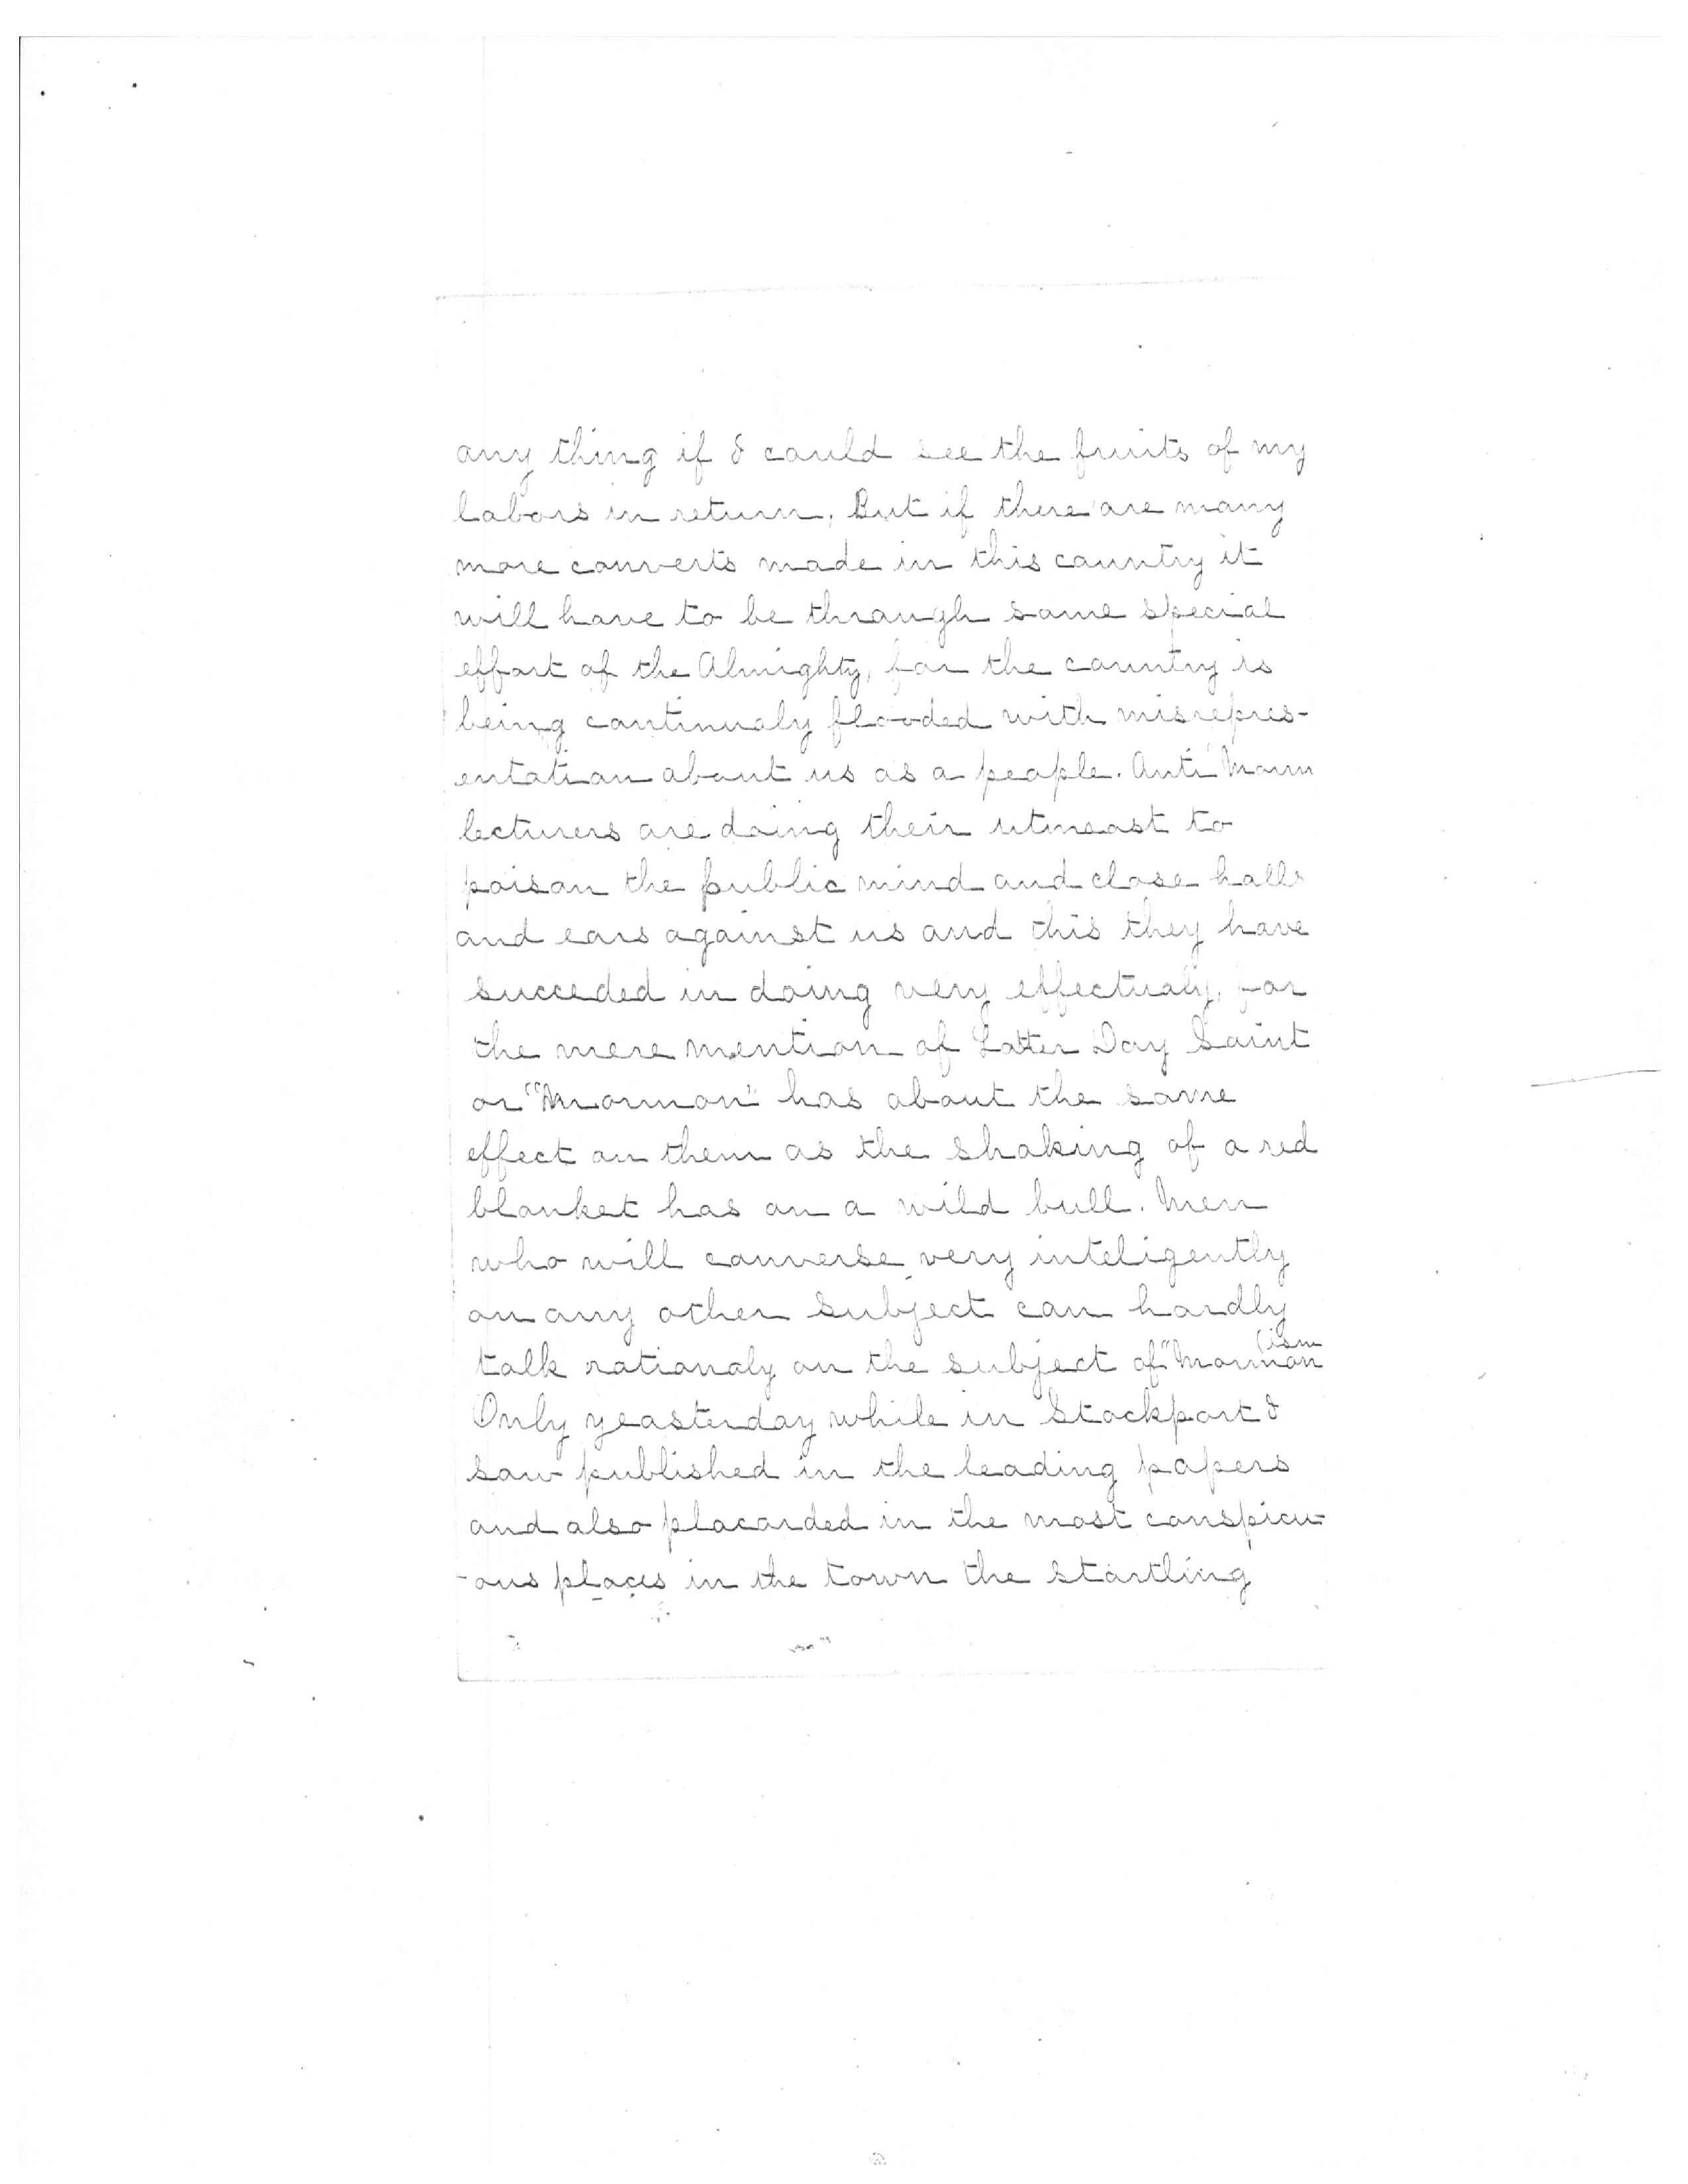 any thing if I could see the fruits of my
labors in return, But if there are many
more converts made in this country it
will have to be through some special
effort of the Almighty, for the country is
being continualy flooded with misrepres-
entation about us as a people. Anti "Morm
lecturers are doing their utmoast to
poison the public mind and close halls
and ears against us and this they have
succeded in doing very effectualy, for
the mere mention of Latter Day Saint
or "Mormon" has about the same
effect on them as the shaking of a red
blanket has on a wild bull. Men
who will converse very inteligently
on any other subject can hardly
talk rationaly on the subject of "Mormon
(ism
Only yeasterday while in Stockport I
saw published in the leading papers
and also placarded in the most conspicu-
-ous places in the town the startling